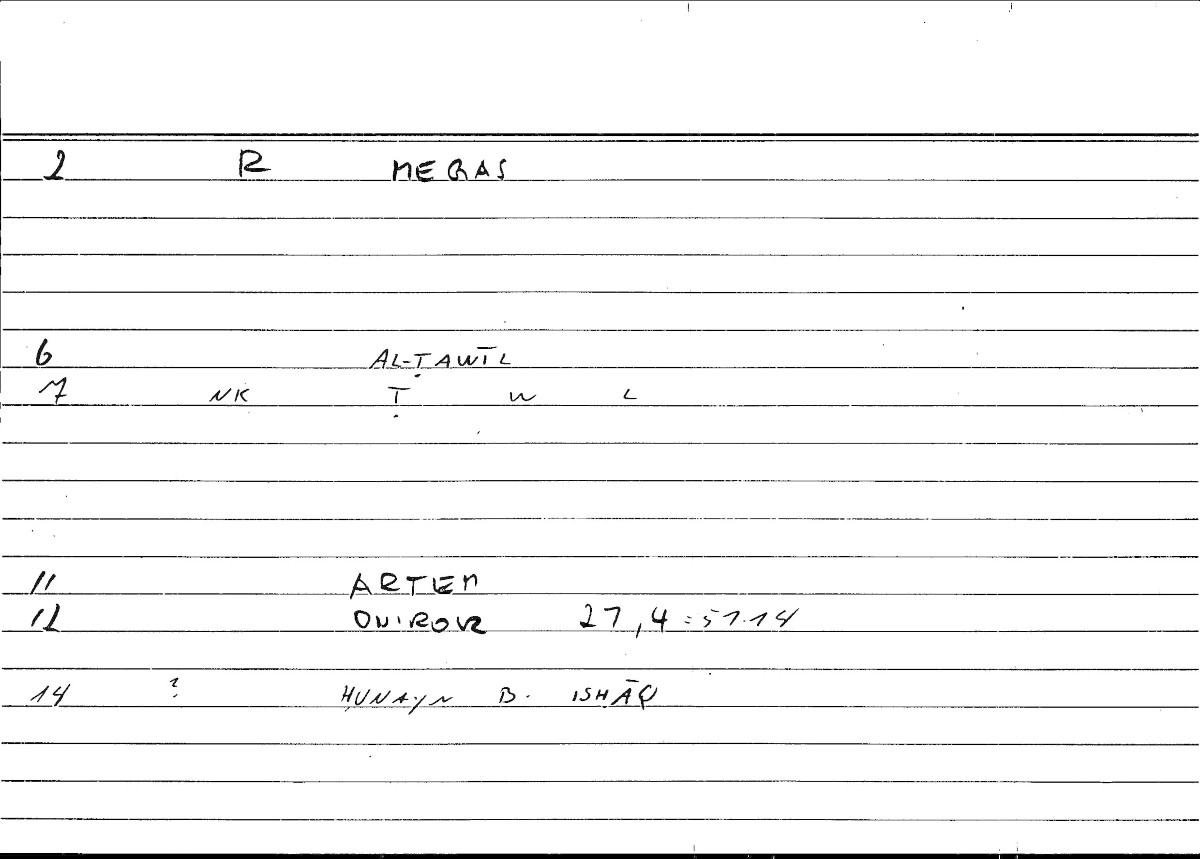 2 R MEGAS
6 AL-ṬAWĪL
7 NK Ṭ W L
11 ARTEM
12 ONIROKR 27,4 = 51.14
14 ? ḤUNAYN B. ISḤĀQ